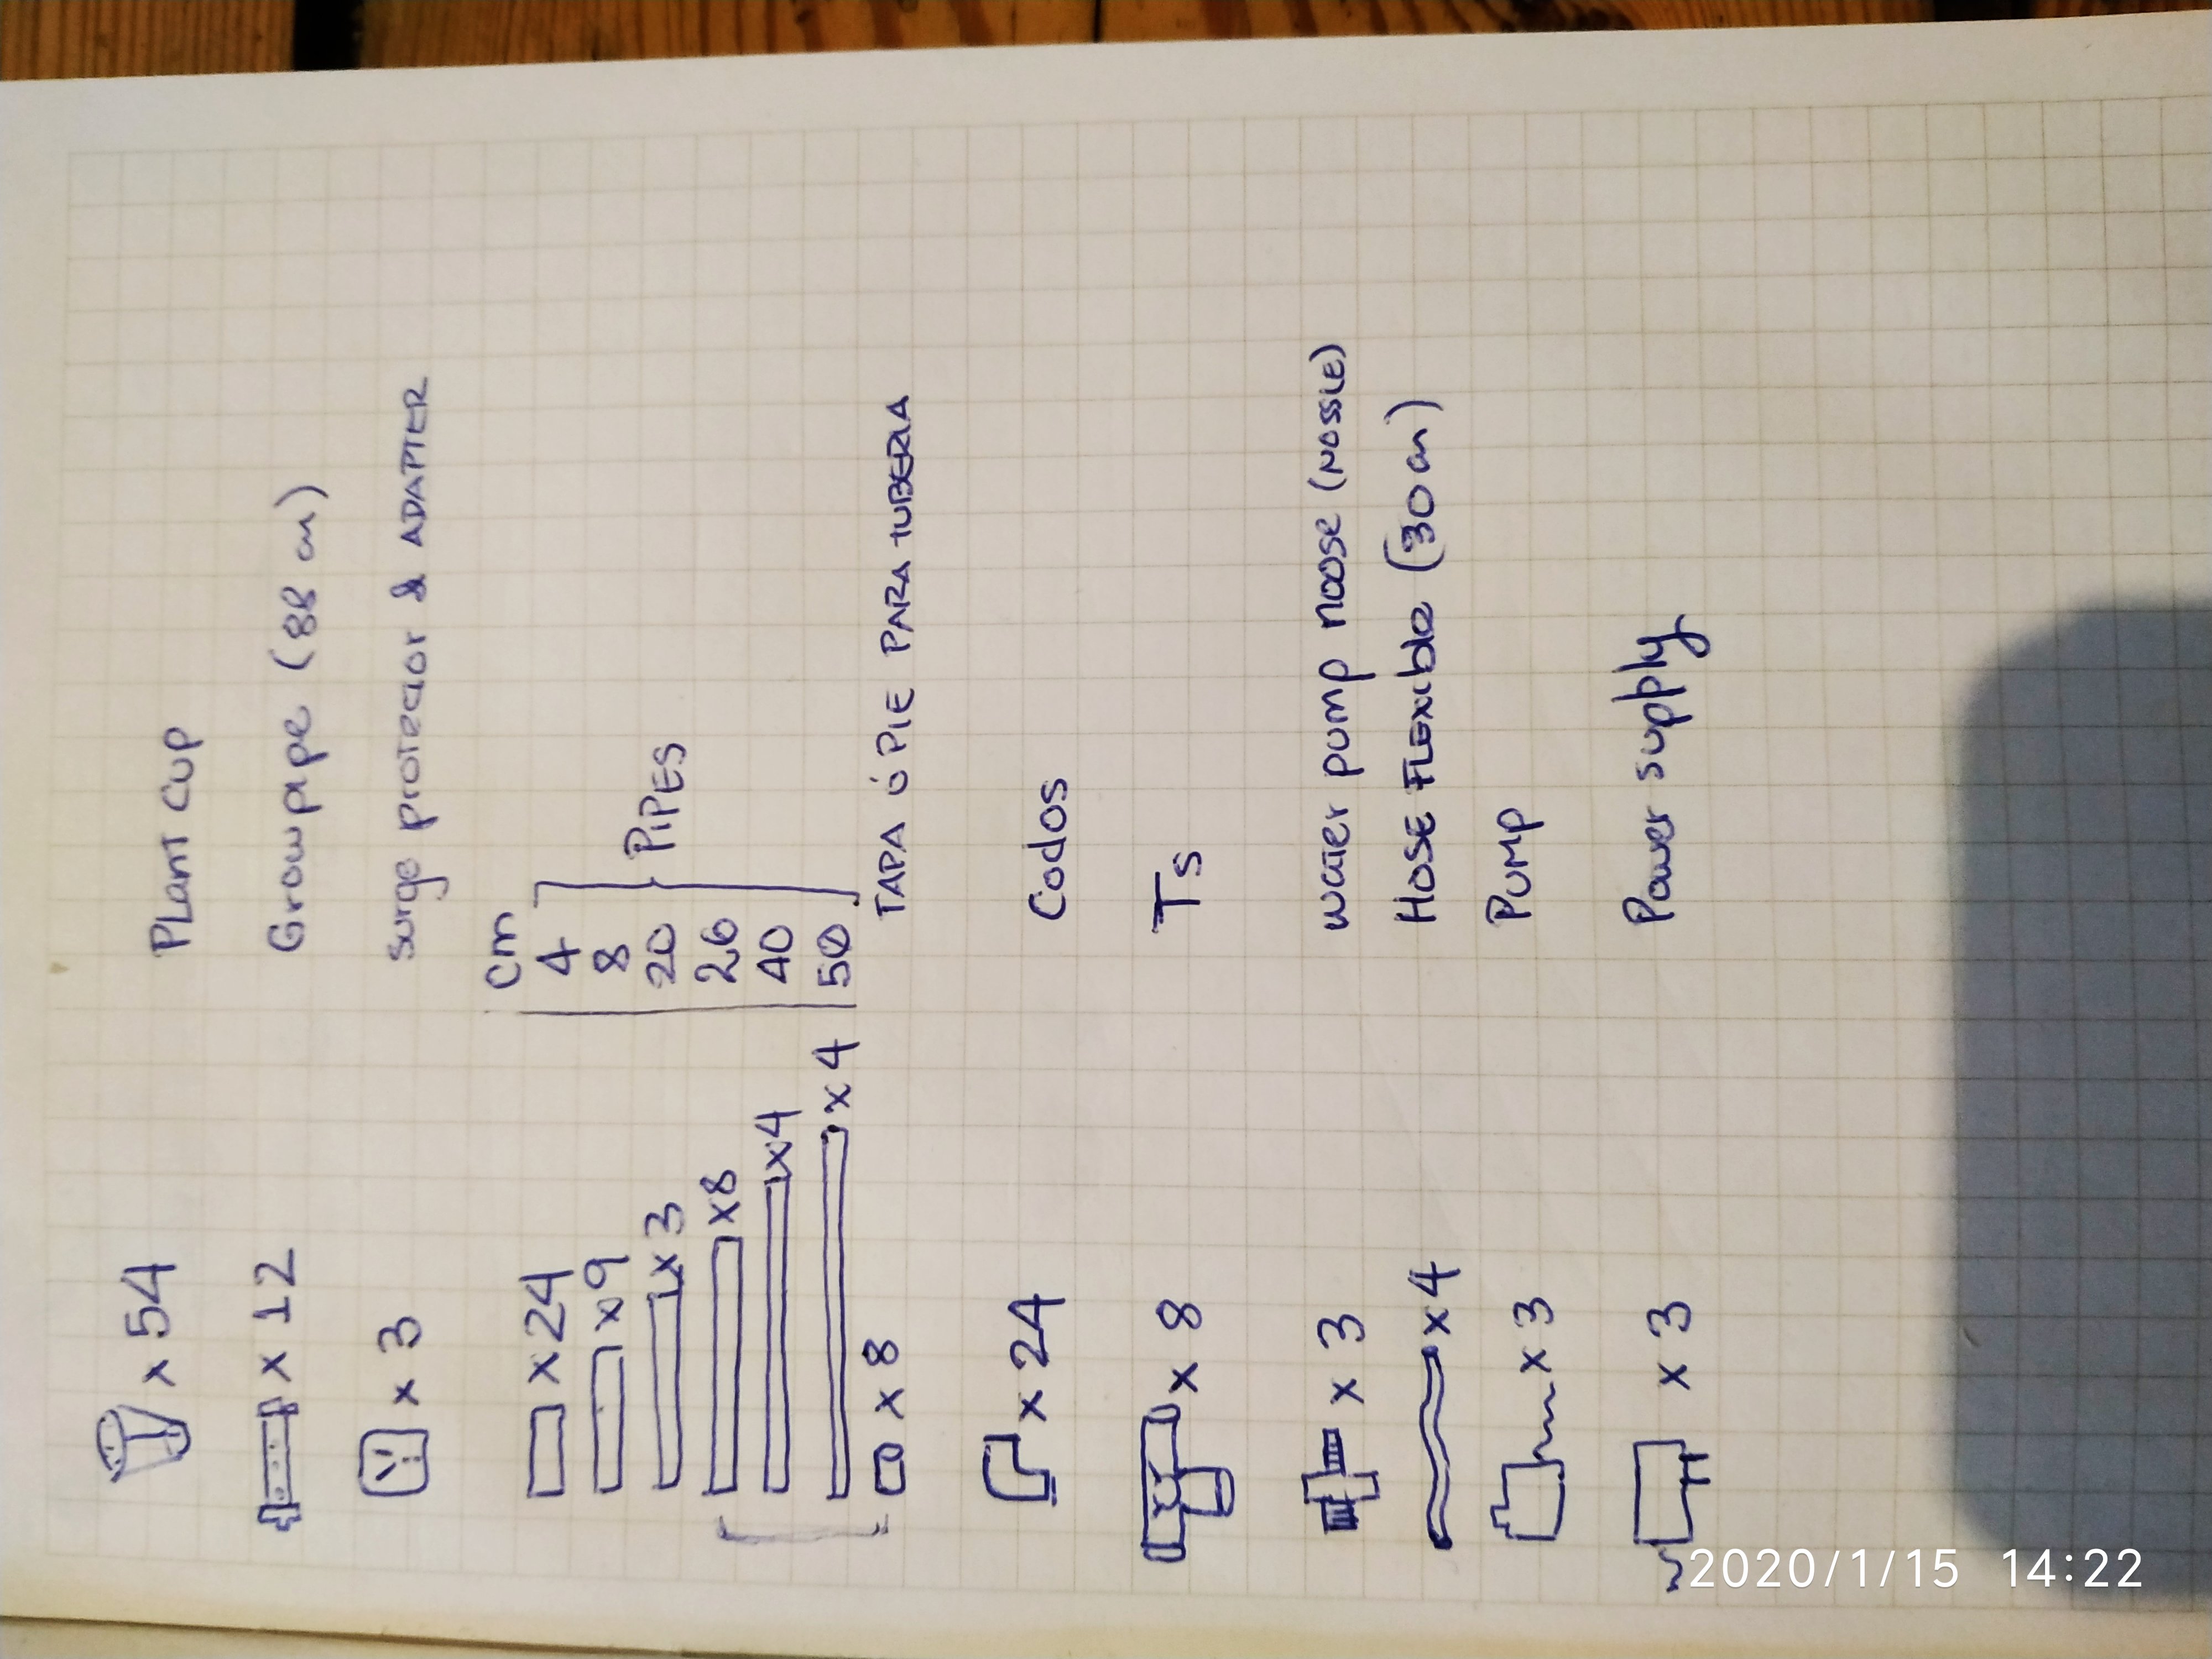 x 54 PLant cup
x 12 Growpipe (88 cm)
x 3 surge protector & ADAPTER
cm
x 24 4
x 9 8
x 3 20 PiPES
x8 26
x4 40
x 4 50
x 8 TAPA ó PIE PARA TUBERIA
x 24 Codos
x 8 Ts
x 3 water pump noose (NOSSLE)
x 4 HOSE FLEXible (30 cm)
x 3 Pump
x 3 Power supply
2020/1/15 14:22